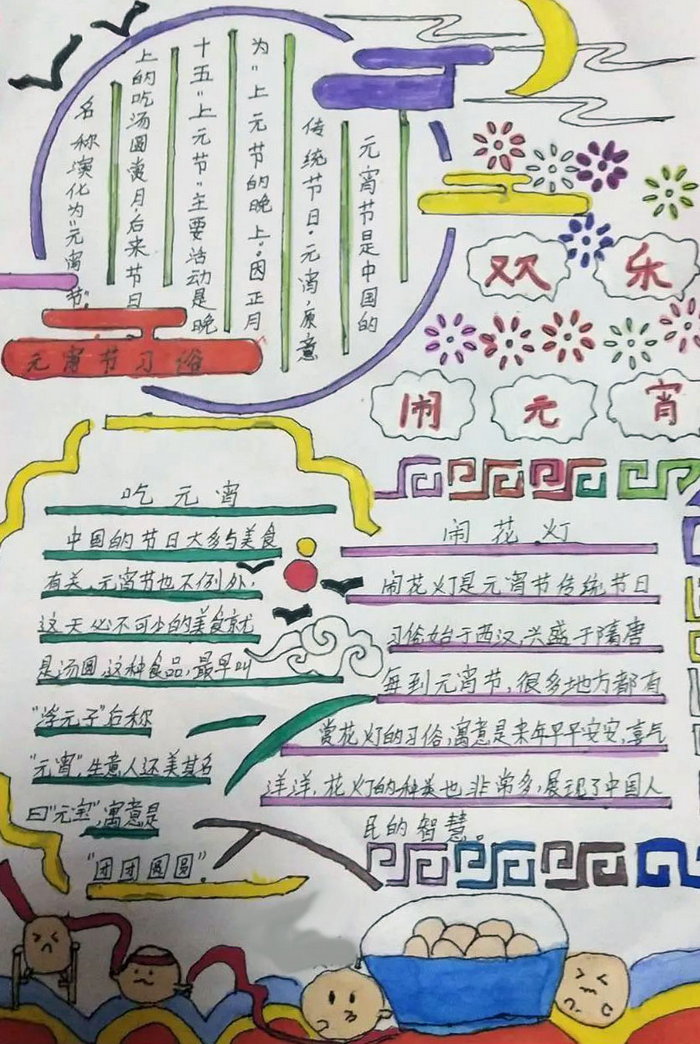 元宵节是中国的
传统节日。元宵,原意
为"上元节的晚上"。因正月
十五"上元节"主要活动是晚
上的吃汤圆赏月,后来节日
名称演化为"元宵节"。
元宵节习俗
欢乐
闹元宵
吃元宵
中国的节日大多与美食
有关,元宵节也不例外,
这天必不可少的美食就
是汤圆,这种食品,最早叫
"浮元子"后称
"元宵",生意人还美其名
曰"元宝",寓意是
"团团圆圆"。
闹花灯
闹花灯是元宵节传统节日
习俗始于西汉,兴盛于隋唐
每到元宵节,很多地方都有
赏花灯的习俗,寓意是来年平平安安,喜气
洋洋,花灯的种类也非常多,展现了中国人
民的智慧。